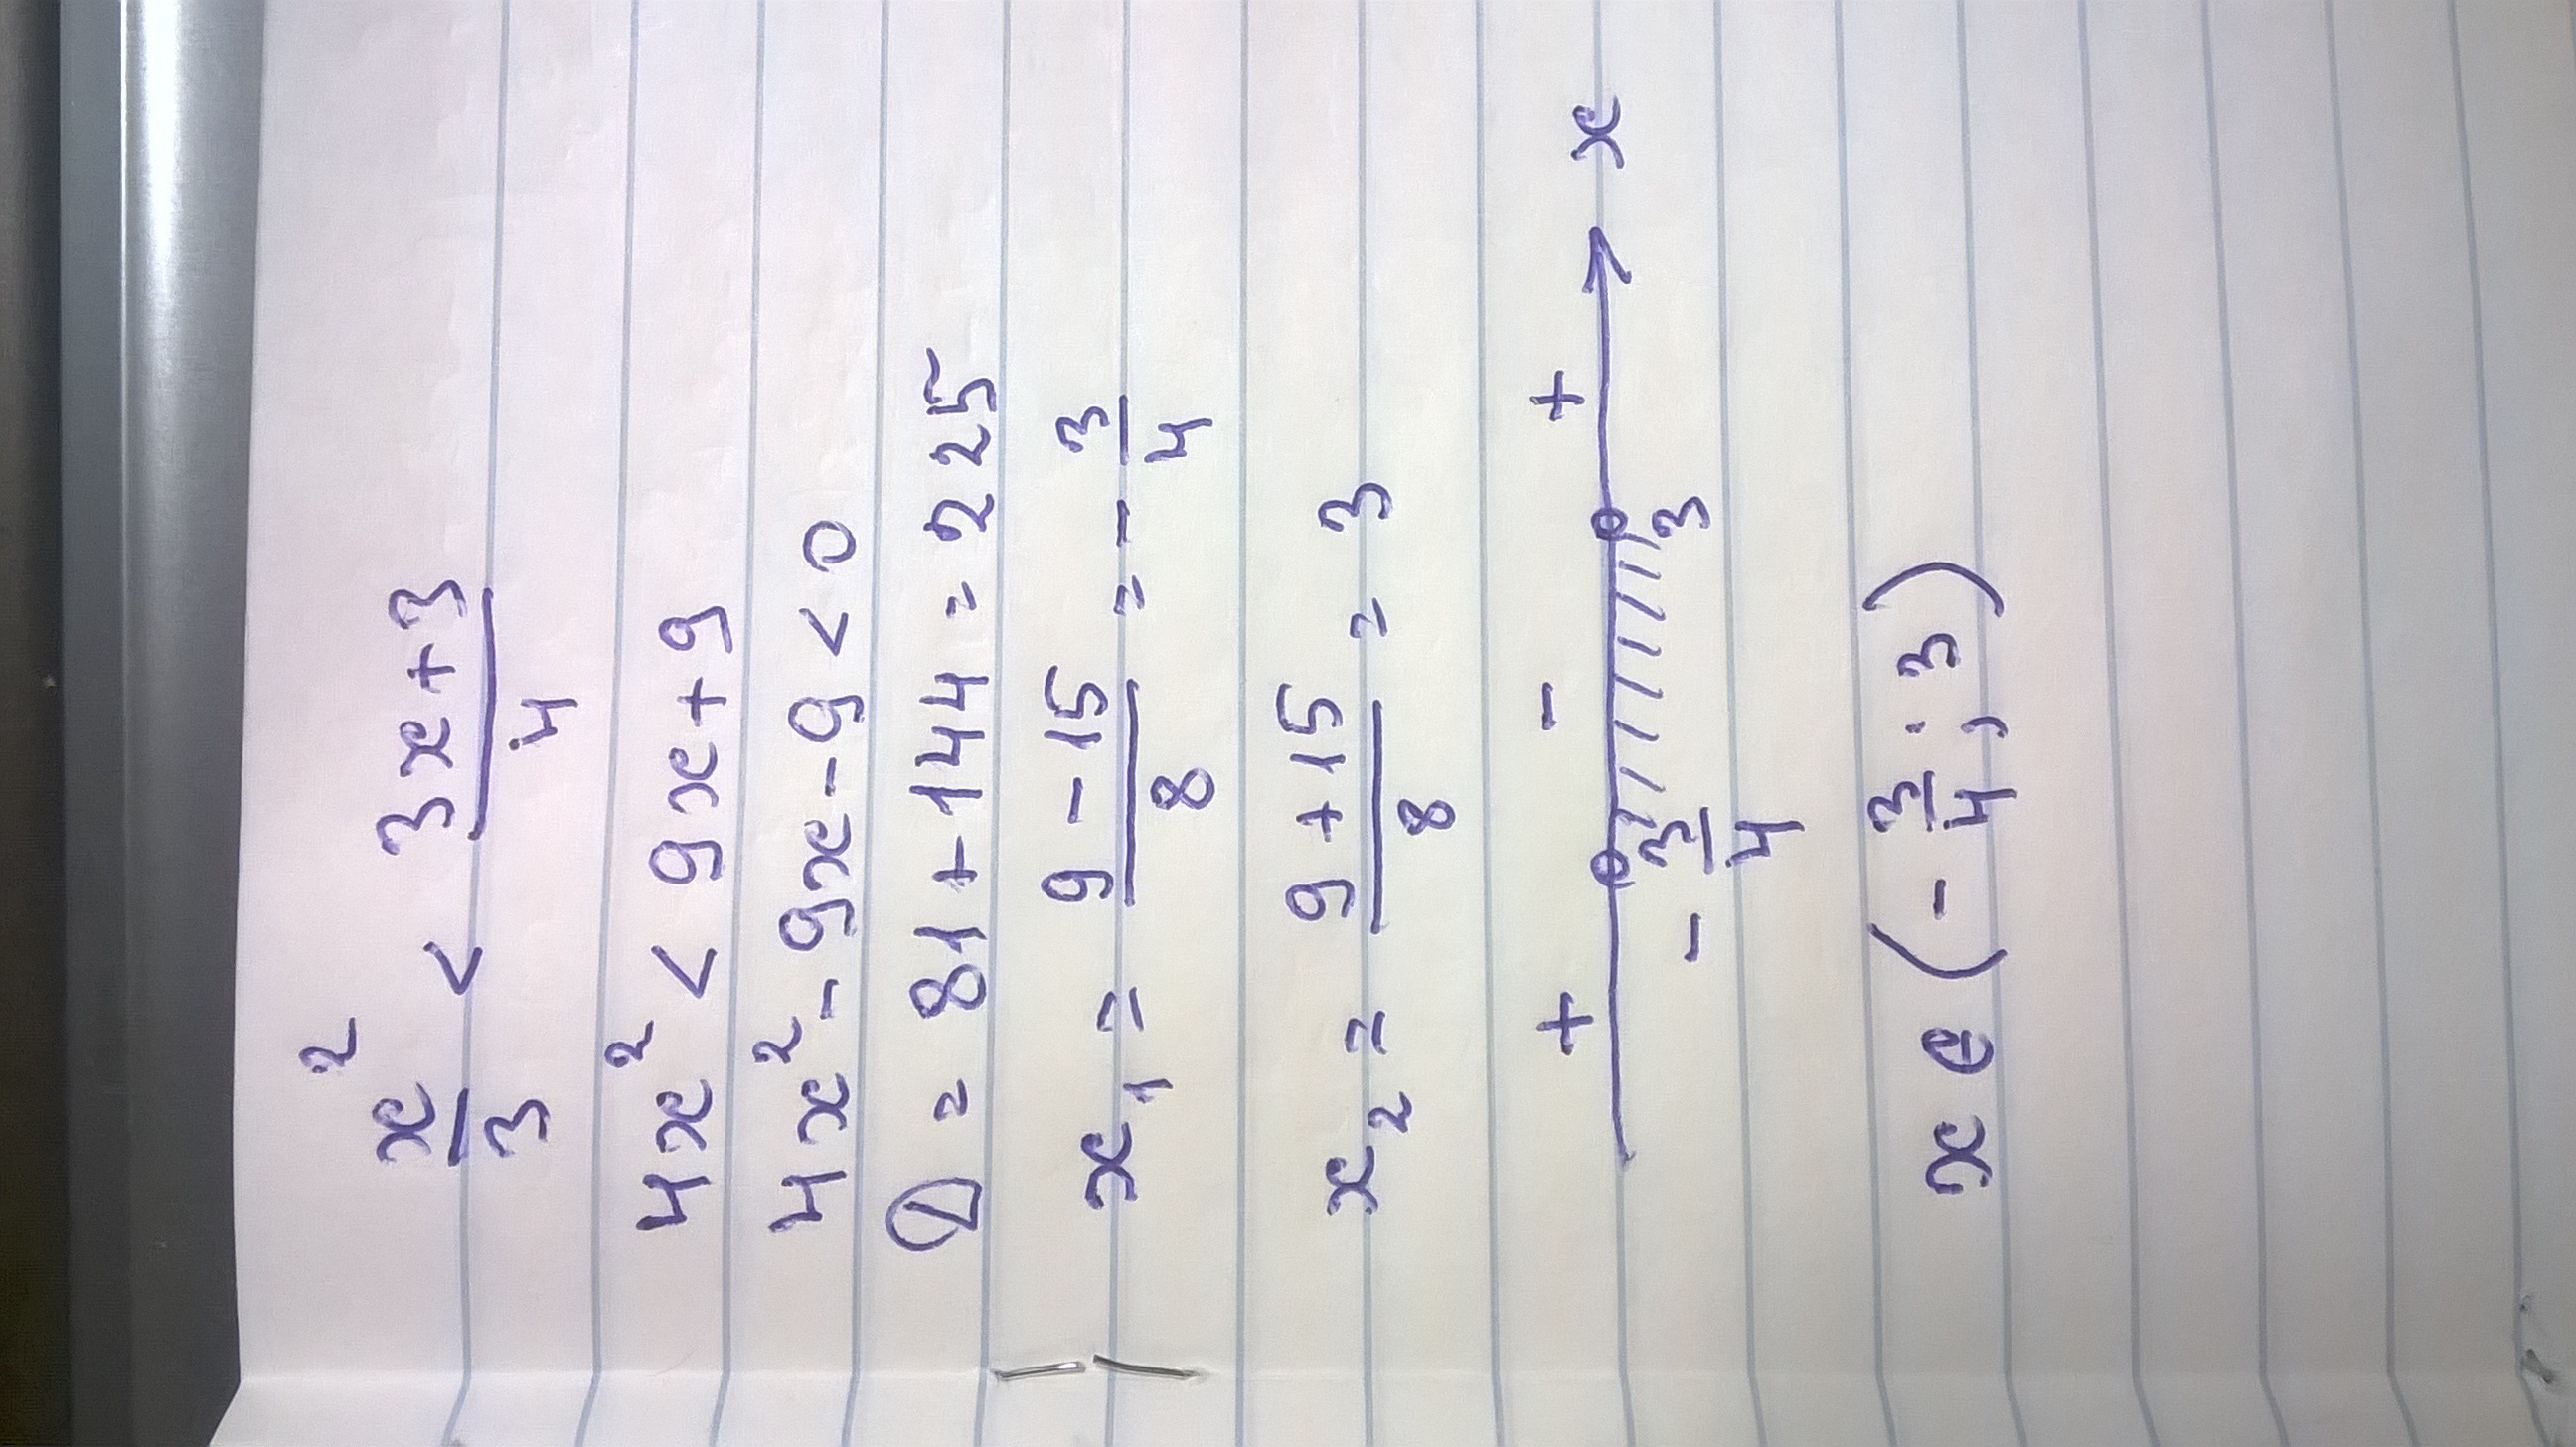 x²/3 < (3x+3)/4
4x² < 9x+9
4x² - 9x - 9 < 0
D = 81 + 144 = 225
x₁ = (9 - 15)/8 = - 3/4
x₂ = (9 + 15)/8 = 3
+ - + x
- 3/4 3
x ∈ (- 3/4 ; 3)